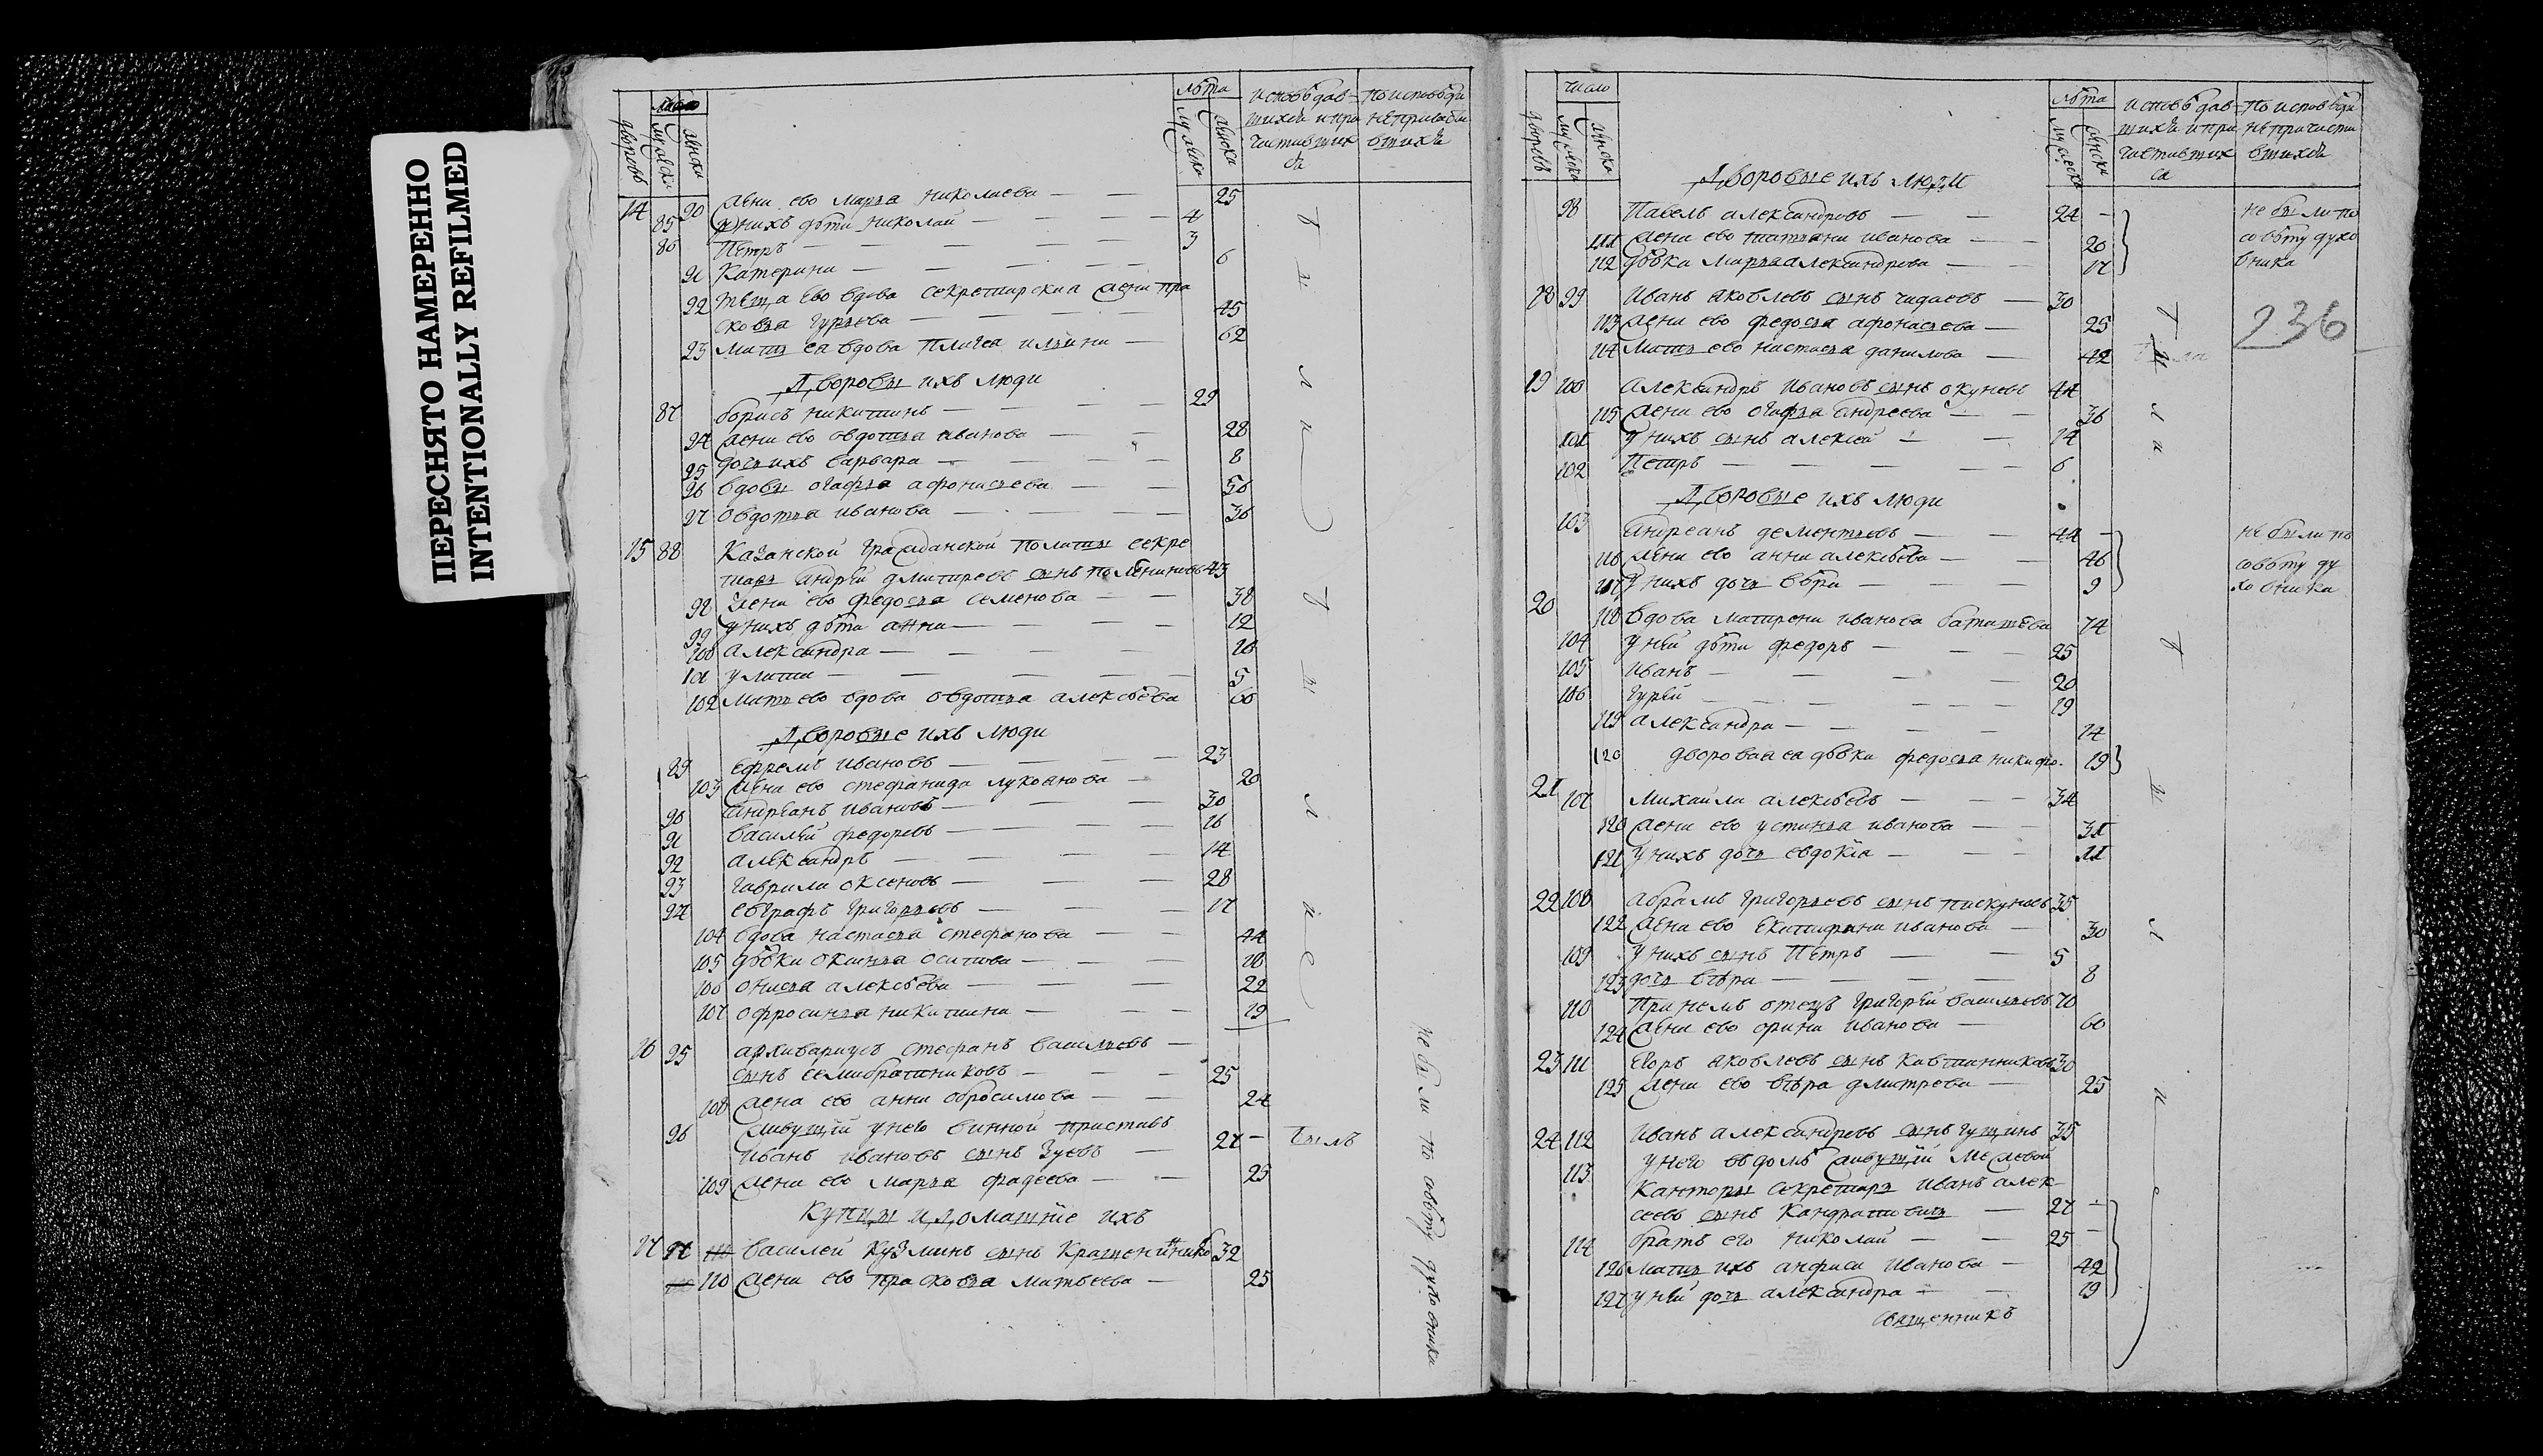 ПЕРЕСНЯТО НАМЕРЕННО
INTENTIONALLY REFILMED
число
лѣта
исповѣдав- по исповѣди
шихся и при не причасти
частивших вшихся
ся
дворовъ мужеска женска
мужеска женска
14 90 жена ево марья николаева — 25
85 у нихъ дѣти николай — 4
86 Петръ — 3
91 Катерина — 6
92 теща ево вдова секретарская жена пра
сковья гурьева — 45
93 мать ея вдова ильина — 62
Дворовыя ихъ люди
87 борисъ никитинъ — 29
94 жена ево овдотья иванова — 28
95 дочь ихъ варвара — 8
96 вдовы огафья афонасьева — 50
97 овдотья иванова — 36
15 88 Казанской гражданской полиціи секре
тарь андрей дмитревъ сынъ 43
98 жена ево федосья семенова — 38
99 у нихъ дѣти анна — 12
100 александра — 10
101 улита — 5
102 мать ево вдова овдотья алексѣева 60
Дворовые ихъ люди
89 ефремъ ивановъ — 23
103 жена ево стефанида лукоянова — 20
90 андреянъ ивановъ — 30
91 василей федоровъ — 16
92 александръ — 14
93 гаврила оксеновъ — 28
94 евграфъ григорьевъ — 17
104 вдова настасья стефанова — 44
105 дѣвки оксинья осипова — 18
106 онисья алексѣева — 22
107 офросинья никитина — 19
16 95 архиваріусъ стефанъ васильевъ —
сынъ семибратниковъ — 25
108 жена ево анна обросимова — 24
96 живущій у него винной приставъ
иванъ ивановъ сынъ Зуевъ — 27 — былъ
109 жена ево марья фадеева — 25
Купцы и домашніе ихъ
17 97 василей кузминъ сынъ Крашенинников 32
110 жена ево прасковья матвѣева — 25
были
были все
не были по совѣту духовника
число
лѣта
исповѣдав- по исповѣди
шихся и при не причасти
частивших вшихся
ся
дворовъ мужеска женска
мужеска женска
Дворовые ихъ люди
98 Павелъ александровъ — 24 — не были по
111 жена ево татьяна иванова — 20 совѣту духо
112 дѣвка марья александрова — 17 вника
18 99 иванъ яковлевъ сынъ чидаевъ — 30
236
113 жена ево федосья афонасьева — 25
114 мать ево настасья данилова — 42
19 100 александръ ивановъ сынъ окуневъ 44
115 жена ево огафья андреева — 36
101 у нихъ сынъ алексей — 14
102 Петръ — 6
Дворовые ихъ люди
103 андреянъ дементьевъ — 44 — не были по
116 жена ево анна алексѣева — 46 совѣту ду
117 у нихъ дочь вѣра — 9 ховника
20 118 вдова матрена иванова батишева 74
104 у ней дѣти федоръ — 25
105 иванъ — 20
106 гурей — 19
119 александра — 14
120 дворовая ея дѣвка федосья никифо. 19
21 107 михайла алексѣевъ — 34
120 жена ево устинья иванова — 31
121 у нихъ дочь евдокіа — 11
22 108 абрамъ григорьевъ сынъ пискуновъ 35
122 жена ево екатирина иванова — 30
109 у нихъ сынъ Петръ — 5
123 дочь вѣра — 8
110 При немъ отецъ григорей васильевъ 70
124 жена ево орина иванова — 60
23 111 егоръ яковлевъ сынъ 30
125 жена ево вѣра дмитрева — 25
24 112 иванъ александровъ сынъ гущинъ 35
113 у него въ домѣ живущій межевой
канторы секретарь иванъ алек
сеевъ сынъ Кандратовичь — 27 —
114 братъ его николай — 25 —
126 мать ихъ анфиса иванова — 42
127 у ней дочь александра — 19
священникъ
были
были